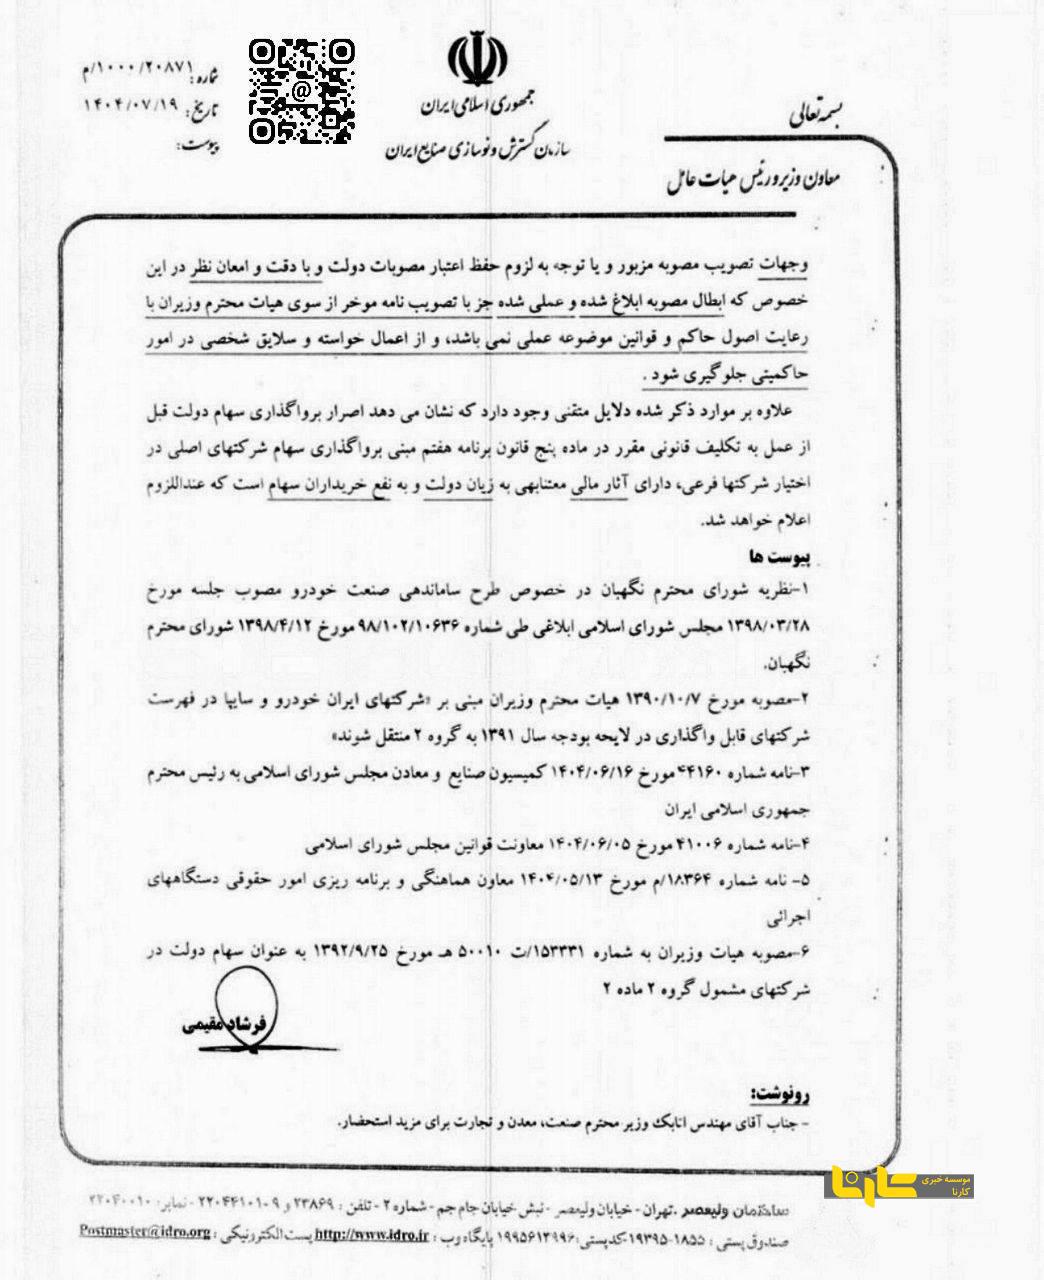 بسمه تعالی
جمهوری اسلامی ایران
سازمان گسترش و نوسازی صنایع ایران
معاون وزیر و رئیس هیات عامل
شماره: ۱۰۰۰/۲۰۸۷۱/م
تاریخ: ۱۴۰۴/۰۷/۱۹
پیوست:
وجهات تصویب مصوبه مزبور و یا توجه به لزوم حفظ اعتبار مصوبات دولت و با دقت و امعان نظر در این
خصوص که ابطال مصوبه ابلاغ شده و عملی شده جز با تصویب نامه موخر از سوی هیات محترم وزیران با
رعایت اصول حاکم و قوانین موضوعه عملی نمی باشد، و از اعمال خواسته و سلایق شخصی در امور
حاکمیتی جلوگیری شود .
علاوه بر موارد ذکر شده دلایل متقنی وجود دارد که نشان می دهد اصرار برواگذاری سهام دولت قبل
از عمل به تکلیف قانونی مقرر در ماده پنج قانون برنامه هفتم مبنی برواگذاری سهام شرکتهای اصلی در
اختیار شرکتها فرعی، دارای آثار مالی معتنابهی به زیان دولت و به نفع خریداران سهام است که عنداللزوم
اعلام خواهد شد.
پیوست ها
۱-نظریه شورای محترم نگهبان در خصوص طرح ساماندهی صنعت خودرو مصوب جلسه مورخ
۱۳۹۸/۰۳/۲۸ مجلس شورای اسلامی ابلاغی طی شماره ۹۸/۱۰۲/۱۰۶۳۶ مورخ ۱۳۹۸/۴/۱۲ شورای محترم
نگهبان.
۲-مصوبه مورخ ۱۳۹۰/۱۰/۷ هیات محترم وزیران مبنی بر «شرکتهای ایران خودرو و سایپا در فهرست
شرکتهای قابل واگذاری در لایحه بودجه سال ۱۳۹۱ به گروه ۲ منتقل شوند»
۳-نامه شماره ۴۴۱۶۰ مورخ ۱۴۰۴/۰۶/۱۶ کمیسیون صنایع و معادن مجلس شورای اسلامی به رئیس محترم
جمهوری اسلامی ایران
۴-نامه شماره ۴۱۰۰۶ مورخ ۱۴۰۴/۰۶/۰۵ معاونت قوانین مجلس شورای اسلامی
۵- نامه شماره ۱۸۳۶۴/م مورخ ۱۴۰۴/۰۵/۱۳ معاون هماهنگی و برنامه ریزی امور حقوقی دستگاههای
اجرائی
۶-مصوبه هیات وزیران به شماره ۱۵۳۳۳۱/ت ۵۰۰۱۰ هـ مورخ ۱۳۹۲/۹/۲۵ به عنوان سهام دولت در
شرکتهای مشمول گروه ۲ ماده ۲
فرشاد مقیمی
رونوشت:
- جناب آقای مهندس اتابک وزیر محترم صنعت، معدن و تجارت برای مزید استحضار.
موسسه خبری
کارنا
کارنا
ساختمان ولیعصر .تهران - خیابان ولیعصر - نبش خیابان جام جم - شماره ۲ - تلفن : ۲۳۸۶۹ و ۹-۲۲۰۴۴۱۰۱ - نمابر: ۲۲۰۴۰۰۱۰
صندوق پستی : ۱۸۵۵-۱۹۳۹۵-کدپستی: ۱۹۹۵۶۱۳۹۹۶ پایگاه وب : http://www.idro.ir پست الکترونیکی : Postmaster@idro.org